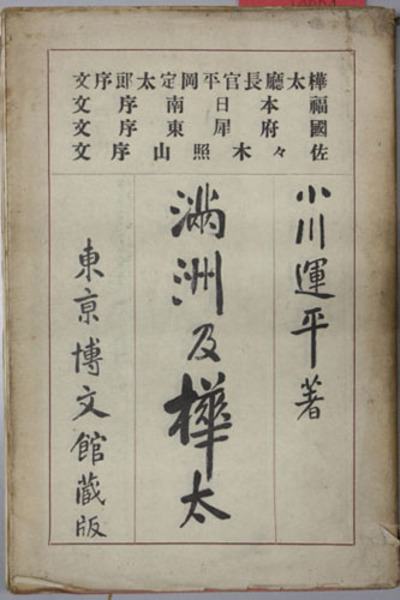 樺太廳長官平岡定太郎序文
福本日南序文
國府犀東序文
佐々木照山序文
小川運平著
滿洲及樺太
東亰博文館藏版